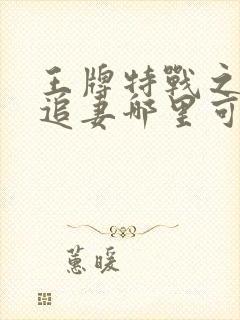 王牌特戰之
追妻哪里可
蕙暖